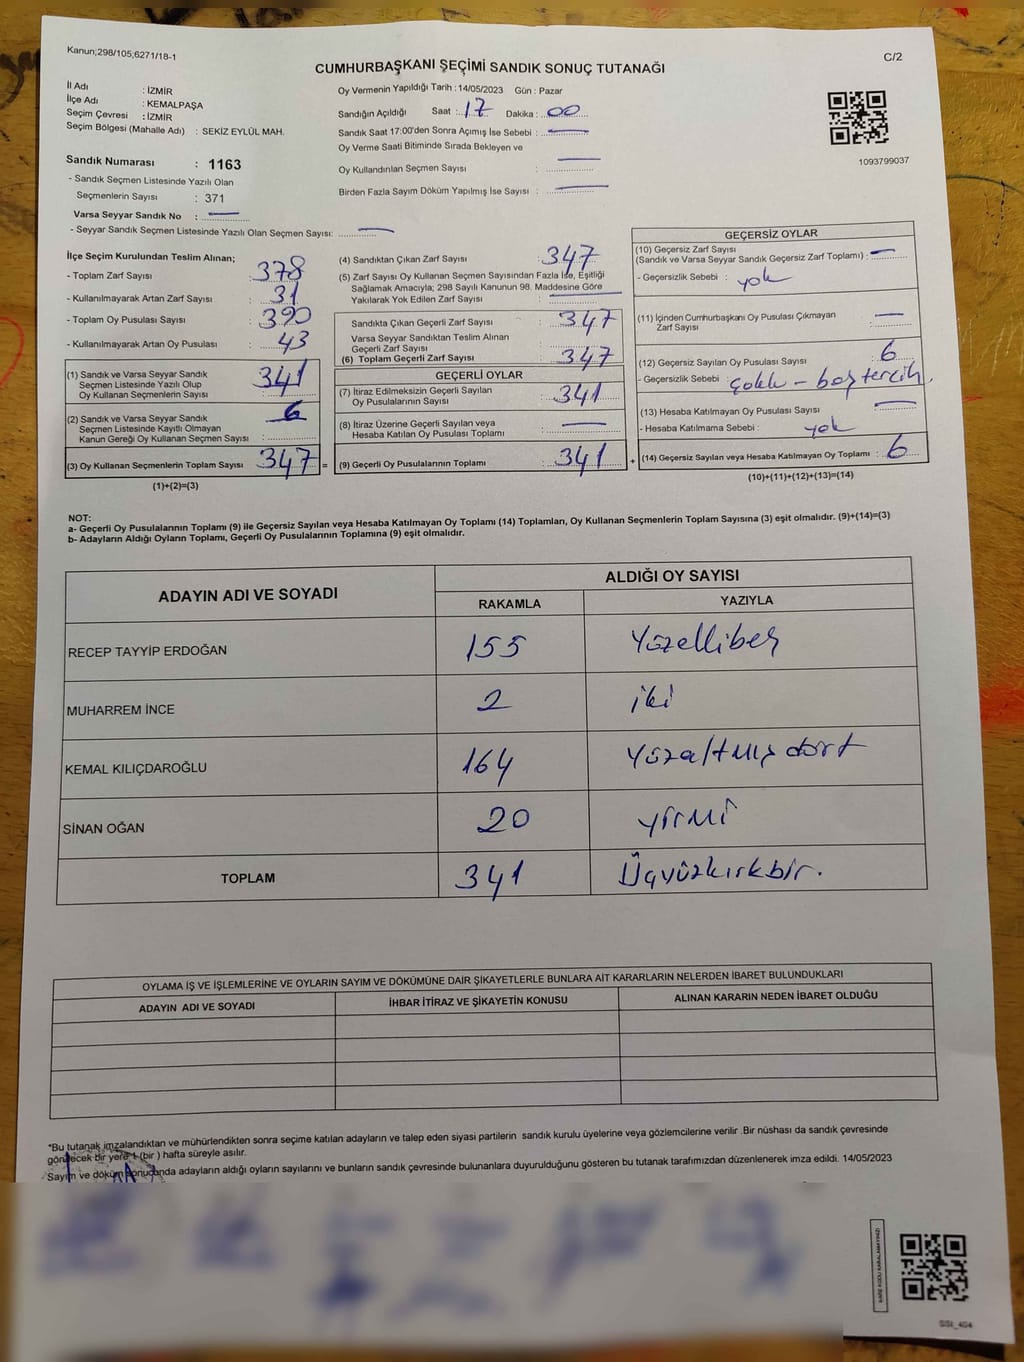 Kanun;298/105,6271/18-1
C/2
CUMHURBAŞKANI SEÇİMİ SANDIK SONUÇ TUTANAĞI
İl Adı : İZMİR
İlçe Adı : KEMALPAŞA
Seçim Çevresi : İZMİR
Seçim Bölgesi (Mahalle Adı) : SEKİZ EYLÜL MAH.
Sandık Numarası : 1163
- Sandık Seçmen Listesinde Yazılı Olan
Seçmenlerin Sayısı : 371
Varsa Seyyar Sandık No : —
- Seyyar Sandık Seçmen Listesinde Yazılı Olan Seçmen Sayısı: —
Oy Vermenin Yapıldığı Tarih : 14/05/2023 Gün : Pazar
Sandığın Açıldığı Saat : 17 Dakika : 00
Sandık Saat 17:00'den Sonra Açımış İse Sebebi : —
Oy Verme Saati Bitiminde Sırada Bekleyen ve
Oy Kullandırılan Seçmen Sayısı : —
Birden Fazla Sayım Döküm Yapılmış İse Sayısı : —
1093799037
İlçe Seçim Kurulundan Teslim Alınan;
- Toplam Zarf Sayısı : 378
- Kullanılmayarak Artan Zarf Sayısı : 31
- Toplam Oy Pusulası Sayısı : 390
- Kullanılmayarak Artan Oy Pusulası : 43
(1) Sandık ve Varsa Seyyar Sandık
Seçmen Listesinde Yazılı Olup
Oy Kullanan Seçmenlerin Sayısı : 341
(2) Sandık ve Varsa Seyyar Sandık
Seçmen Listesinde Kayıtlı Olmayan
Kanun Gereği Oy Kullanan Seçmen Sayısı : 6
(3) Oy Kullanan Seçmenlerin Toplam Sayısı : 347 =
(1)+(2)=(3)
(4) Sandıktan Çıkan Zarf Sayısı : 347
(5) Zarf Sayısı Oy Kullanan Seçmen Sayısından Fazla İse, Eşitliği
Sağlamak Amacıyla; 298 Sayılı Kanunun 98. Maddesine Göre
Yakılarak Yok Edilen Zarf Sayısı : —
Sandıkta Çıkan Geçerli Zarf Sayısı : 347
Varsa Seyyar Sandıktan Teslim Alınan
Geçerli Zarf Sayısı :
(6) Toplam Geçerli Zarf Sayısı : 347
GEÇERLİ OYLAR
(7) İtiraz Edilmeksizin Geçerli Sayılan
Oy Pusulalarının Sayısı : 341
(8) İtiraz Üzerine Geçerli Sayılan veya
Hesaba Katılan Oy Pusulası Toplamı : —
(9) Geçerli Oy Pusulalarının Toplamı : 341 +
GEÇERSİZ OYLAR
(10) Geçersiz Zarf Sayısı
(Sandık ve Varsa Seyyar Sandık Geçersiz Zarf Toplamı) : —
- Geçersizlik Sebebi : yok
(11) İçinden Cumhurbaşkanı Oy Pusulası Çıkmayan
Zarf Sayısı : —
(12) Geçersiz Sayılan Oy Pusulası Sayısı : 6
- Geçersizlik Sebebi : çoklu - boş tercih.
(13) Hesaba Katılmayan Oy Pusulası Sayısı : —
- Hesaba Katılmama Sebebi : yok
(14) Geçersiz Sayılan veya Hesaba Katılmayan Oy Toplamı : 6
(10)+(11)+(12)+(13)=(14)
NOT:
a- Geçerli Oy Pusulalarının Toplamı (9) ile Geçersiz Sayılan veya Hesaba Katılmayan Oy Toplamı (14) Toplamları, Oy Kullanan Seçmenlerin Toplam Sayısına (3) eşit olmalıdır. (9)+(14)=(3)
b- Adayların Aldığı Oyların Toplamı, Geçerli Oy Pusulalarının Toplamına (9) eşit olmalıdır.
ADAYIN ADI VE SOYADI
ALDIĞI OY SAYISI
RAKAMLA YAZIYLA
RECEP TAYYİP ERDOĞAN 155 Yüzellibeş
MUHARREM İNCE 2 iki
KEMAL KILIÇDAROĞLU 164 Yüzaltmış dört
SİNAN OĞAN 20 yirmi
TOPLAM 341 Üçyüzkırkbir.
OYLAMA İŞ VE İŞLEMLERİNE VE OYLARIN SAYIM VE DÖKÜMÜNE DAİR ŞİKAYETLERLE BUNLARA AİT KARARLARIN NELERDEN İBARET BULUNDUKLARI
ADAYIN ADI VE SOYADI İHBAR İTİRAZ VE ŞİKAYETİN KONUSU ALINAN KARARIN NEDEN İBARET OLDUĞU
*Bu tutanak imzalandıktan ve mühürlendikten sonra seçime katılan adayların ve talep eden siyasi partilerin sandık kurulu üyelerine veya gözlemcilerine verilir .Bir nüshası da sandık çevresinde
görülecek bir yere 1 (bir ) hafta süreyle asılır.
Sayım ve döküm sonucunda adayların aldığı oyların sayılarını ve bunların sandık çevresinde bulunanlara duyurulduğunu gösteren bu tutanak tarafımızdan düzenlenerek imza edildi. 14/05/2023
KARE KODU KARALAMAYINIZ!